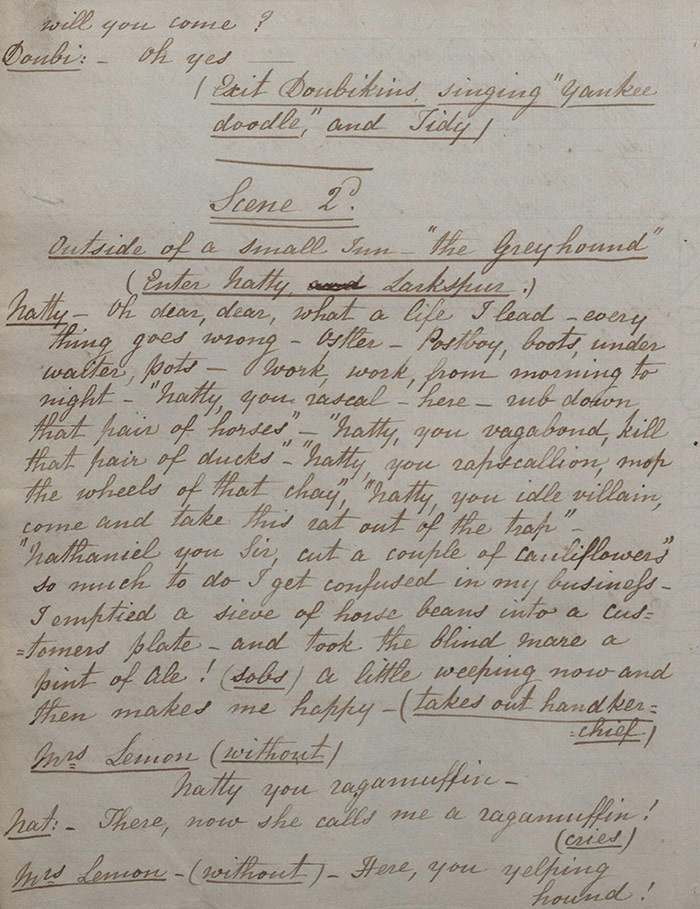 will you come?
Doubi: - Oh yes —
(Exit Doubikins, singing "Yankee
doodle," and Tidy)
Scene 2d.
Outside of a small Inn - "the Greyhound"
(Enter Natty and Larkspur.)
Natty - Oh dear, dear, what a life I lead - every
thing goes wrong - Ostler - Postboy, boots, under
waiter, pots - Work, work, from morning to
night - "Natty, you rascal - here - rub down
that pair of horses" - "Natty, you vagabond, kill
that pair of ducks" - "Natty, you rapscallion, mop
the wheels of that chay", "Natty, you idle villain,
come and take this rat out of the trap" -
"Nathaniel you Sir, cut a couple of cauliflowers"
so much to do I get confused in my business -
I emptied a sieve of horse beans into a cus=
=tomers plate - and took the blind mare a
pint of Ale! (sobs) a little weeping now and
then makes me happy - (takes out handker=
=chief)
Mrs Lemon (without)
Natty you ragamuffin -
Nat: - There, now she calls me a ragamuffin!
(cries)
Mrs Lemon - (without) - Here, you yelping
hound!